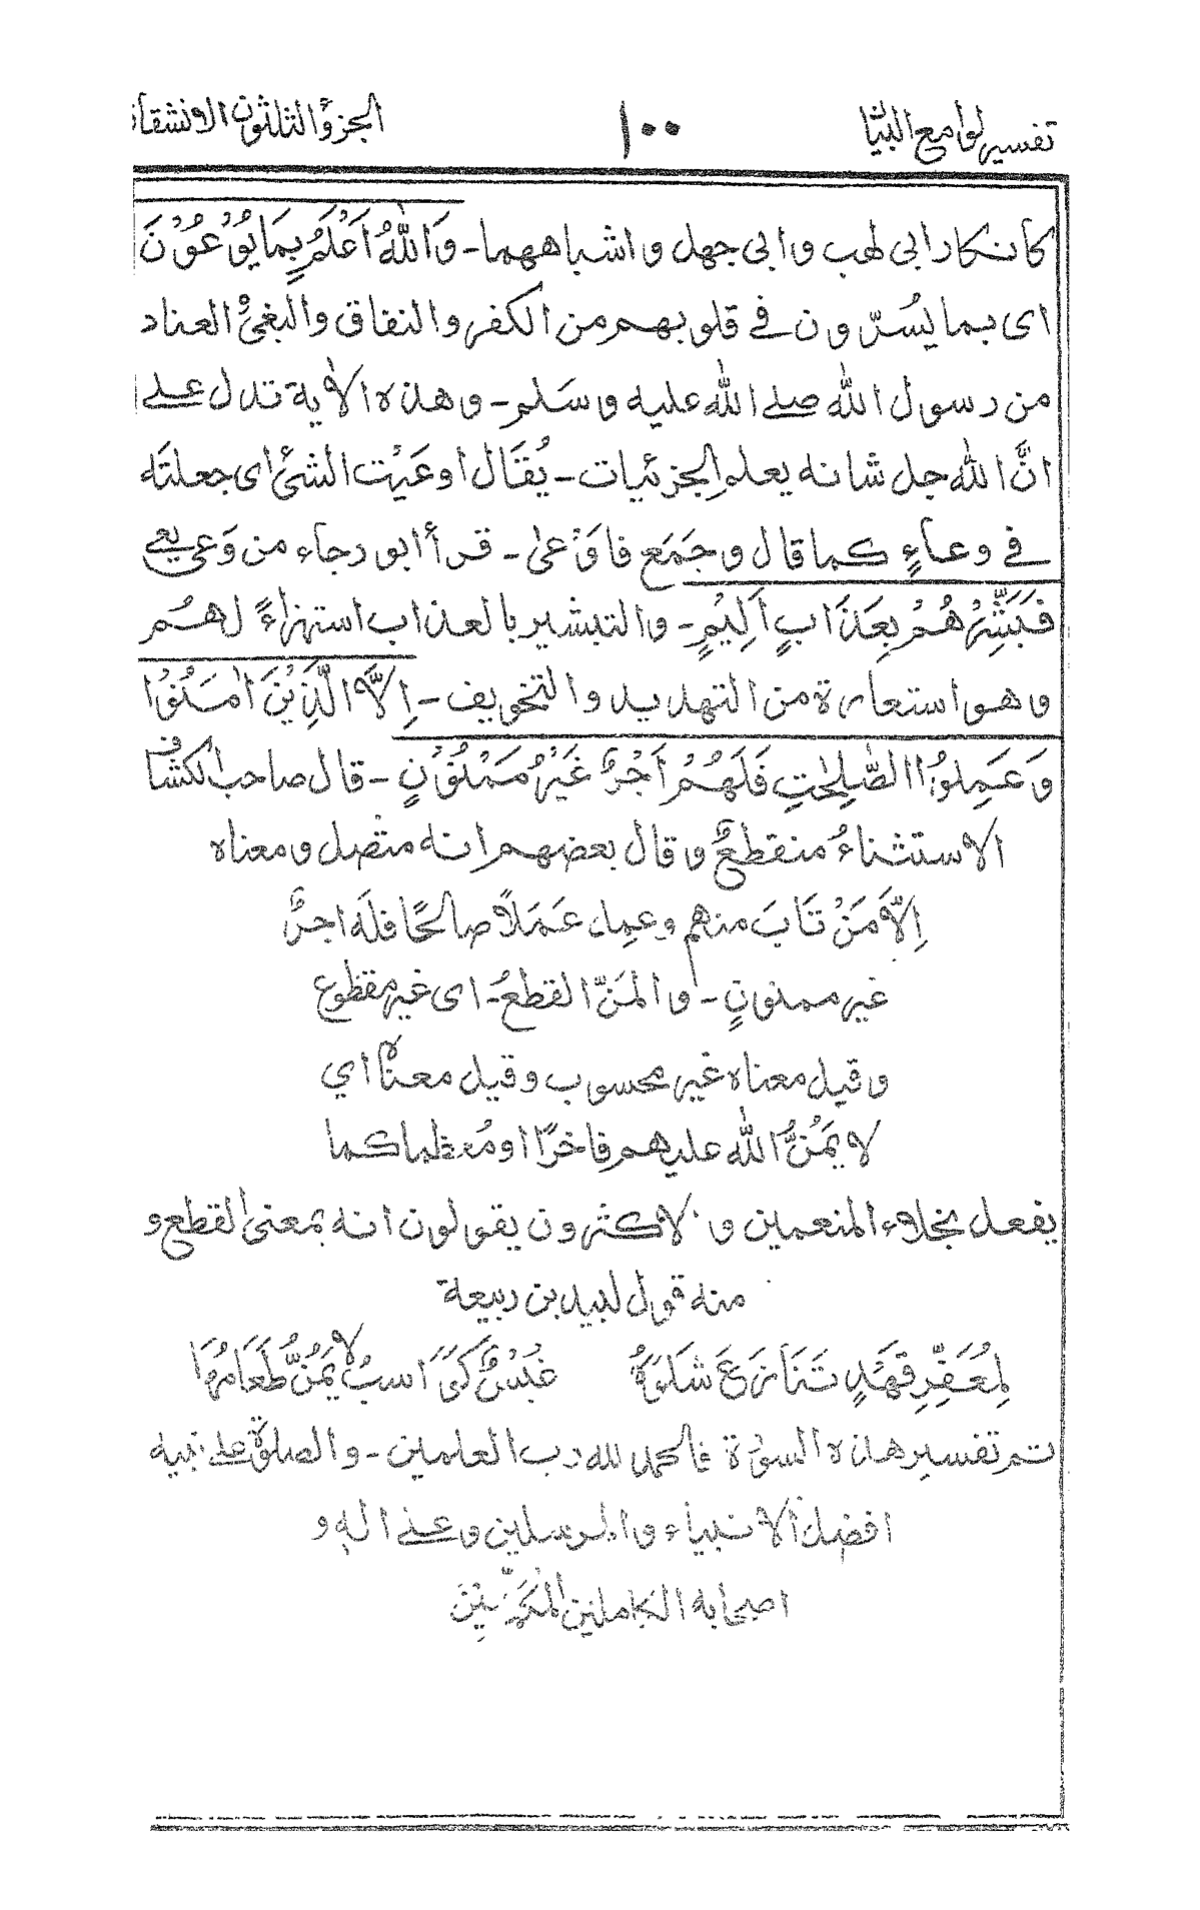 تفسير لوامع البيان ١٠٠ الجزء الثلثون الانشقاق
كانكار ابى لهب وابى جهل واشباههما ـ وَاللّٰهُ اَعْلَمُ بِمَا يُوْعُوْنَ
اى بما يُسرّون فى قلوبهم من الكفر والنفاق والبغى والعناد
من رسول الله صلى الله عليه وسَلم ـ وهذه الاٰية تدل على
انَّ الله جل شانه يعلم الجزئيات ـ يُقَال اوعَيْت الشئ اى جعلتَه
فى وعاءٍ كما قال وجَمَع فاَوْعىٰ ـ قرأ ابو رجاء من وَعى يعى
فَبَشِّرْهُمْ بِعَذَابٍ اَلِيْمٍ ـ والتبشير بالعذاب استهزاءً لهم
وهو استعارة من التهديد والتخويف ـ اِلَّا الَّذِيْنَ اٰمَنُوْا
وَعَمِلُوا الصّٰلِحٰتِ فَلَهُمْ اَجْرٌ غَيْرُ مَمْنُوْنٍ ـ قال صاحب الكشاف
الاستثناءُ منقطعٌ وقال بعضهم انه متصل ومعناه
اِلَّا مَنْ تَابَ منهم وعمِل عَمَلاً صالحًا فلَه اجرٌ
غير ممنونٍ ـ والمَنّ القطعُ ـ اى غير مقطوع
وقيل معناه غير محسوب وقيل معناه اي
لا يَمُنُّ الله عليهم فاخرًا او مُعظما كما
يفعل بخلاء المنعمين والاكثرون يقولون انه بمعنى القطع و
منه قول لبيد بن ربيعة
لِمُعَفّرٍ قَهْدٍ تَنَازَعَ شَلْوَهٗ غُبْسٌ كَوَاسبُ لا يُمَنُّ طَعَامُهَا
تم تفسير هذه السورة فالحمد لله رب العلمين ـ والصلوة على نبيه
افضل الانبياء والمرسلين وعلى اله و
اصحابه الكاملين المكرمين